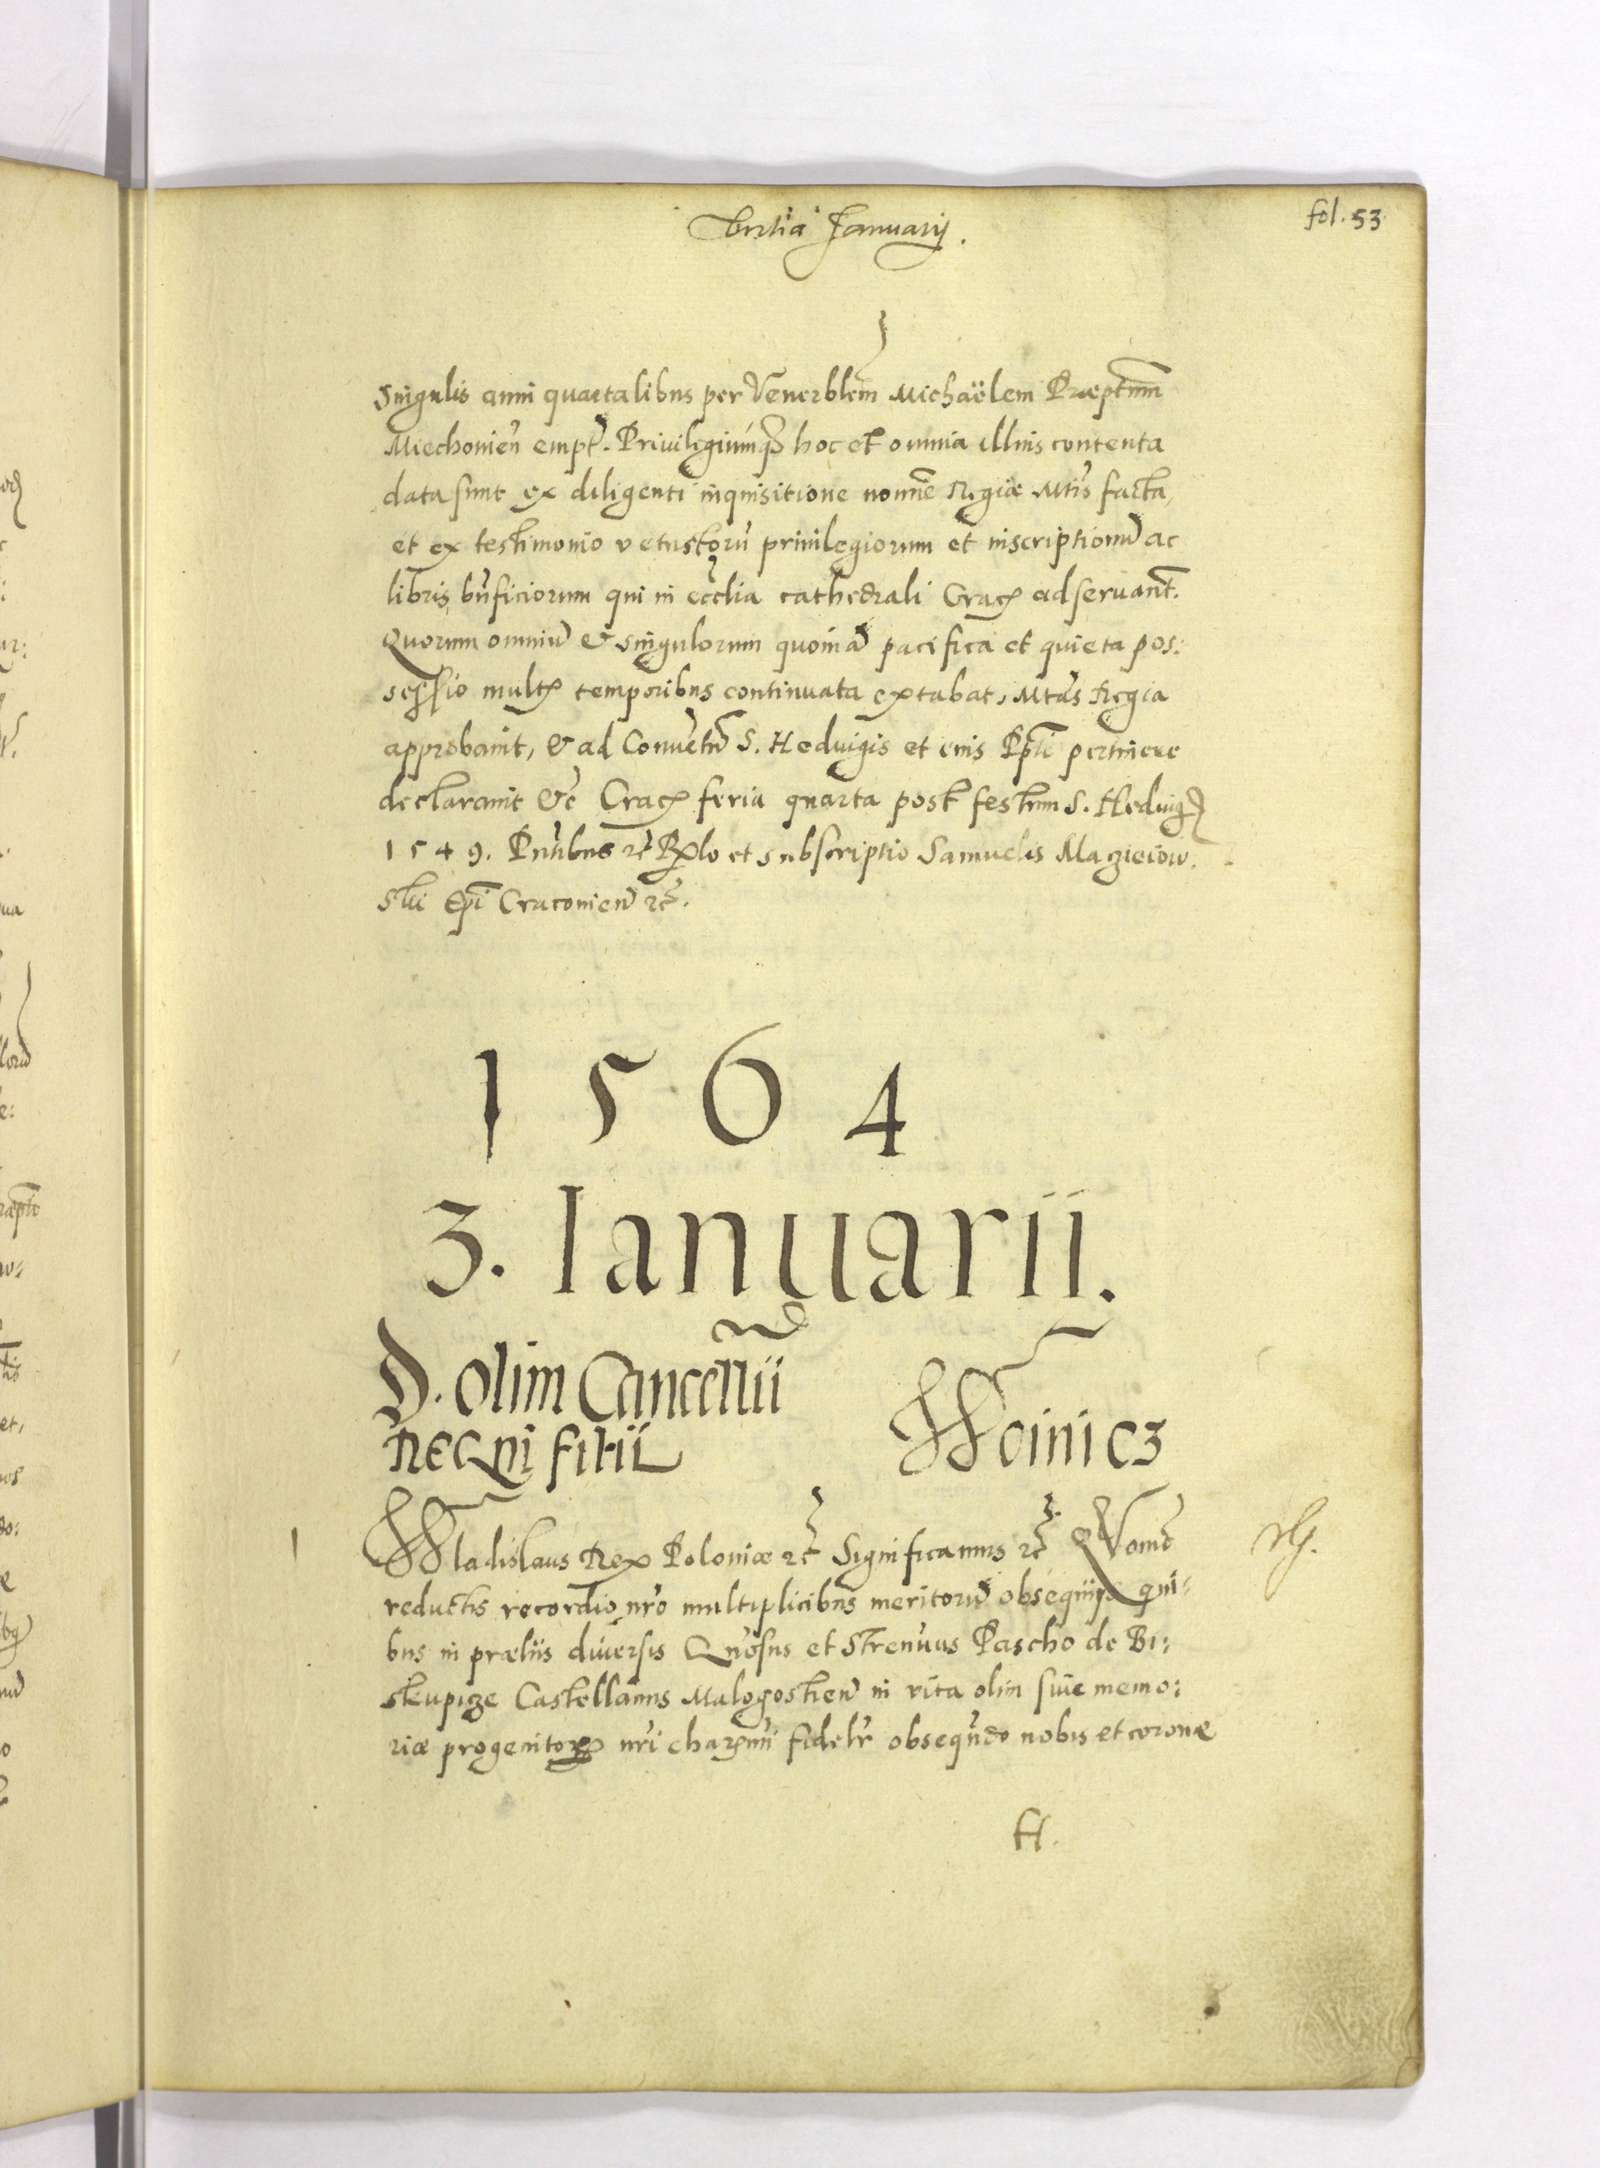 Tertia Januarij.
fol. 53
Singulis anni quartalibus per Venerblem Michaëlem Præptum
Miechouien empt. Privilegiumq hoc et omnia illius contenta
data sunt ex diligenti inquisitione nomine Regiæ Mtis facta,
et ex testimonio vetustoru privilegiorum et inscriptionu ac
libris bnficiorum qui in ecclia cathedrali Crac adseruant.
Quorum omniu & singulorum quonia pacifica et quieta pos:
sessio mult temporibus continuata extabat, Mtas Regia
approbauit, & ad Conuetu S. Heduigis et eius Ppti pertinere
declarauit &c Crac feria quarta post festum S. Heduig
1549. Pntibus rc Rplo et subscriptio Samuelis Maczieiow.
skii Epi Cracouien rc.
1564
3. Ianuarii.
D. olim Cancellrii
Regni filii
Woinicz
Wladislaus Rex Poloniæ rc Significamus rc Quomo
reductis recordio nro multiplicibus meritoru obsequiis qui:
bus in præliis diuersis Gnosus et Strenuus Pascho de Bi:
skupicze Castellanus Malogostien in vita olim suie memo:
riæ progenitor nri charmi fidelr obsequndo nobis et coronæ
H.